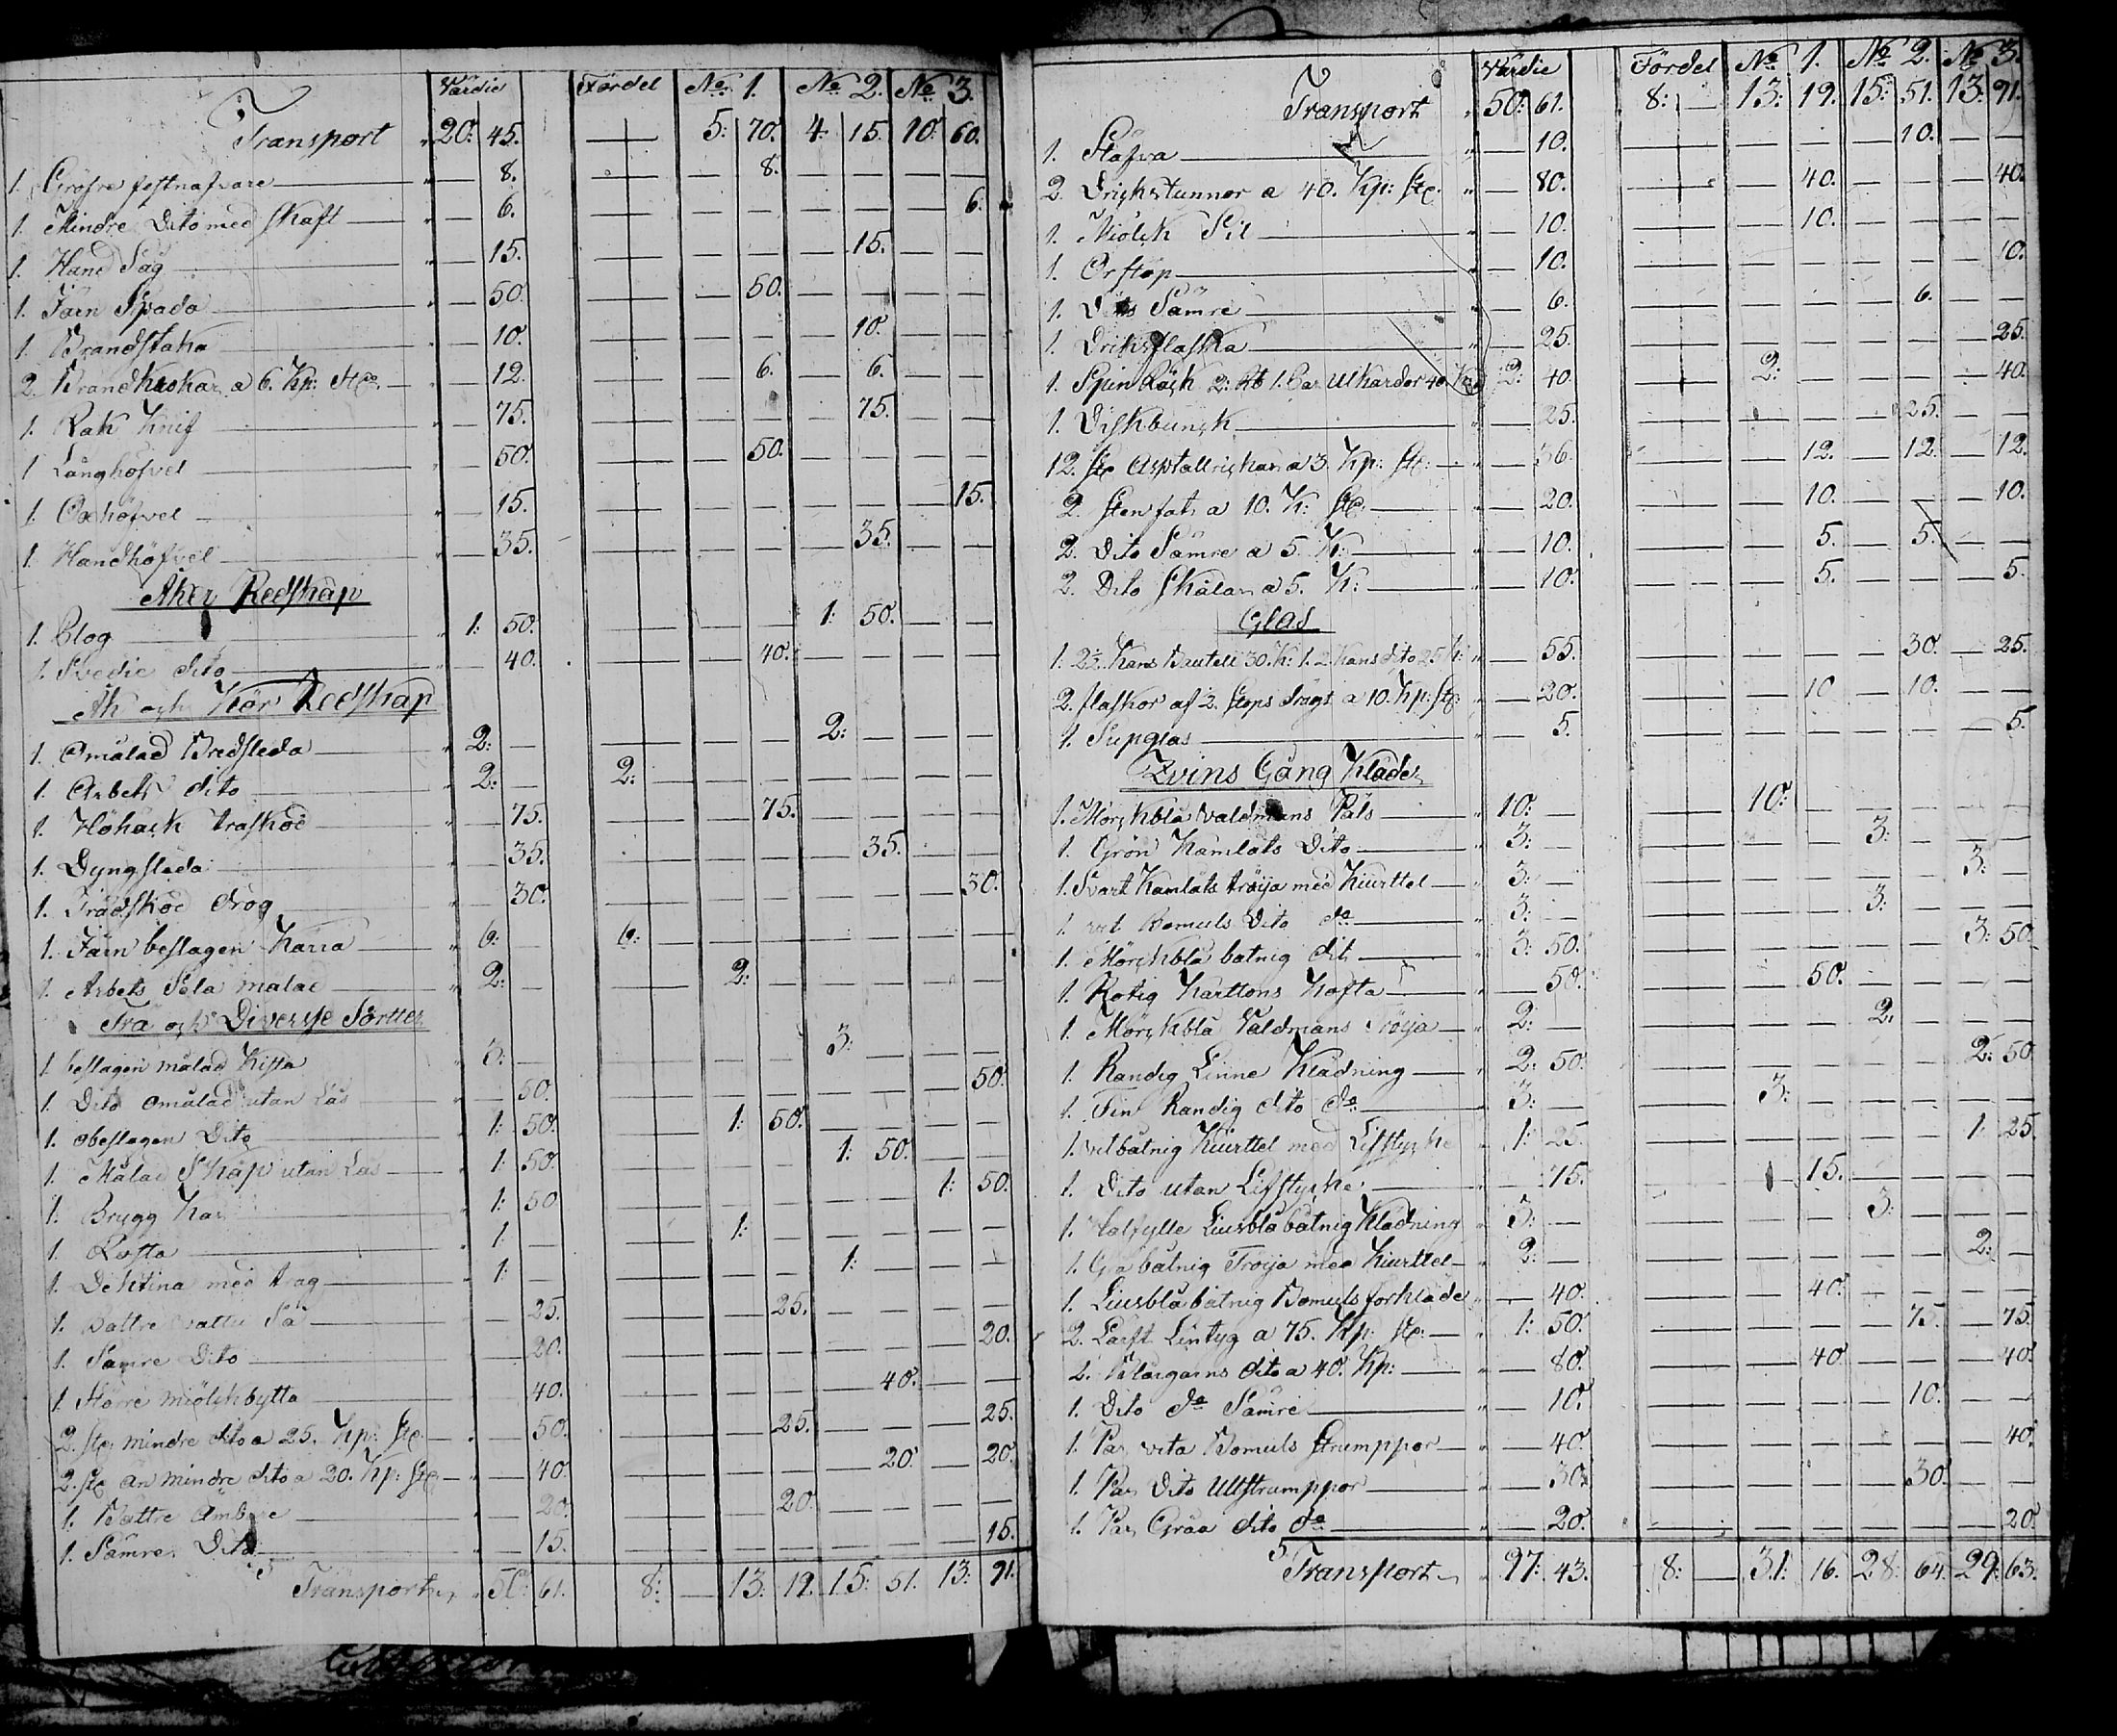 Värdie Fördel No 1. No 2. No 3.
Transport 20: 45. — 5: 70. 4: 15. 10: 60.
1. Grösre festnafvare — 8. — — 8. — — — —
1. Mindre Dito med skaft — 6. — — — — — — 6.
1. Hand Såg — 15. — — — — 15. — —
1. Järn Spada — 50. — — 50. — — — —
1. Brandstaka — 10. — — — — 10. — —
2. Brandkrokar a 6. Kp: stc — 12. — — 6. — 6. — —
1. Rak Knif — 75. — — — — 75. — —
1 Långhöfvel — 50. — — 50. — — — —
1. Oxhöfvel — 15. — — — — — — 15.
1. Handhöfvel — 35. — — — — 35. — —
Åker Redskap
1. Plog 1: 50. — — — 1: 50. — —
1. Svedie dito — 40. — — 40. — — — —
Åk och Kör Redskap
1. Omålad Bredsleda 2: — — — — 2: — — —
1. Arbets dito 2: — 2: — — — — — —
1. Höhäck träskod — 75. — — 75. — — — —
1. Dyngsleda — 35. — — — — 35. — —
1. Trädskod drog — 30. — — — — — — 30.
1. Järn beslagen Kärra 6: — 6: — — — — — —
1. Arbets Sela malad 2: — — 2: — — — — —
Trä och Diversse Sortter
1 beslagen målad Kista 3: — — — — 3: — — —
1. Dito omålad utan Lås — 50. — — — — — — 50.
1. obeslagen Dito 1: 50. — 1: 50. — — — —
1. Målad Skåp utan Lås 1: 50. — — — 1: 50. — —
1. Brygg Kar 1: 50 — — — — — 1: 50.
1. Rosta 1: — — 1: — — — — —
1. Dektina med trag 1: — — — — 1: — — —
1. Bättre vattu Så — 25. — — 25. — — — —
1. Sämre Dito — 20. — — — — — — 20.
1. Större miölckbytta — 40. — — — — 40. — —
2. stc mindre dito a 25. Kp: stc — 50. — — 25. — — — 25.
2. stc än mindre dito a 20. Kp: stc — 40. — — — — 20. — 20.
1. Bättre Ambare — 20. — — 20. — — — —
1. Sämre Dito — 15. — — — — — — 15.
Transport 50: 61. 8: — 13: 19. 15: 51. 13: 91.
Värdie Fördel No 1. No 2. No 3.
Transport 50: 61. 8: — 13: 19. 15: 51. 13: 91.
1. Stäfva — 10. — — — — 10. — —
2. Drickstunnor a 40. Kp: stc — 80. — — 40. — — — 40.
1. Miölck Sil — 10. — — 10. — — — —
1. Örstop — 10. — — — — — — 10.
1. Dito Sämre — 6. — — — — 6. — —
1. Dricksflaska — 25. — — — — — — 25.
1. Spin Råck 2: Rb 1. Par Ulkardor 40. Kp 2: 40. — 2: — — — — 40.
1. Diskbunck — 25. — — — — 25. — —
12. stc Asptallrickar a 3. Kp: st: — 36. — — 12. — 12. — 12.
2. sten fat a 10. K: stc — 20. — — 10. — — — 10.
2. Dito Sämre a 5. K: — 10. — — 5. — 5. — —
2. Dito Skålar a 5. K: — 10. — — 5. — — — 5.
Glas
1: 2½ Kans Bauteli 30. K: 1. 2 Kans dito 25 K: — 55. — — — — 30. — 25.
2. flaskor af 2. stops drögt a 10. Kp: stc — 20. — — 10 — 10. — —
1. Supglas — 5. — — — — — — 5.
Qvins Gång Kläder
1. Mörckblå Valdmans Päls 10: — — 10: — — — — —
1. Grön Kamlåts Dito 3: — — — — 3: — — —
1. Svart Kamlåts tröija med Kiurttel 3: — — — — — — 3: —
1 Bomuls Dito do 3: — — — — 3: — — —
1. Mörckblå batnig dito 3: 50. — — — — — 3: 50.
1. Rotig Karttons Kofta — 50. — — 50. — — — —
1. Mörckblå Valdmans Tröija 2: — — — — 2. — — —
1. Randig Linne Klädning 2: 50. — — — — — 2: 50.
1. Fin Randig dito do 3: — — 3: — — — — —
1. batnig Kiurttel med Lifstycke 1: 25. — — — — — 1: 25.
1. Dito utan Lifstycke — 15. — — 15. — — — —
1. Halfylle Liusblå batnig Klädning 3: — — — — 3: — — —
1. Grå batnig Tröija med Kiurttel 2: — — — — — — 2: —
1. Liusblå batnig Bomuls förkläde — 40. — — 40. — — — —
2. Lärft Lintyg a 75. Kp: stc 1: 50. — — — — 75. — 75.
2. Blårgarns dito a 40. Kp: — 80. — — 40. — — — 40.
1. Dito do Sämre — 10. — — — — 10. — —
1. Par vita Bomuls Strumppor — 40. — — — — — — 40.
1. Par Dito Ullstrumppor — 30. — — — — 30. — —
1. Par Gråa dito do — 20. — — — — — — 20.
Transport 97: 43. 8: — 31: 16. 28: 64. 29: 63.